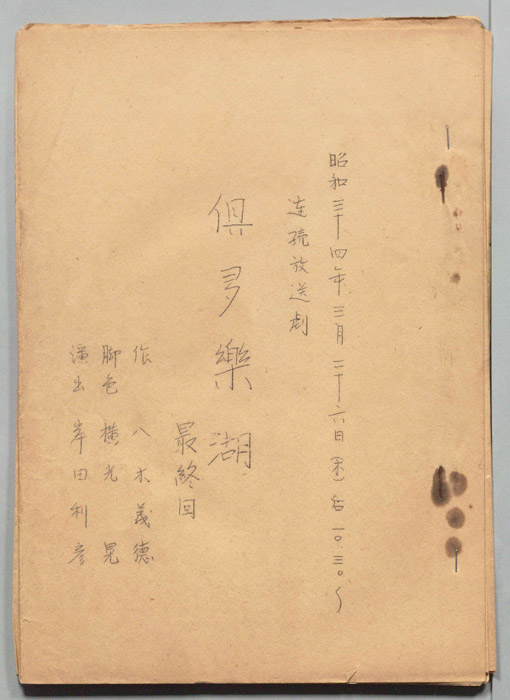 昭和三十四年三月二十六日(木)后一〇.三〇〜
連続放送劇
倶多樂湖
最終回
作 八木義徳
脚色 横光晃
演出 岸田利彦